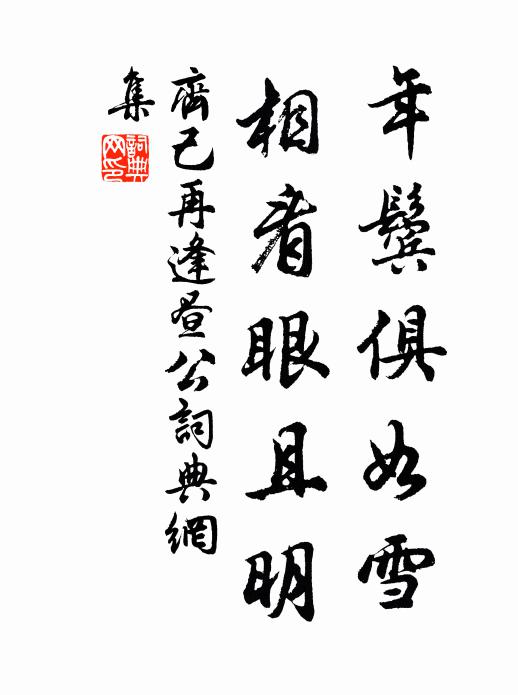 年鬢俱如雪
相看眼且明
齊己再逢晝公詞典網
集
詞典网印